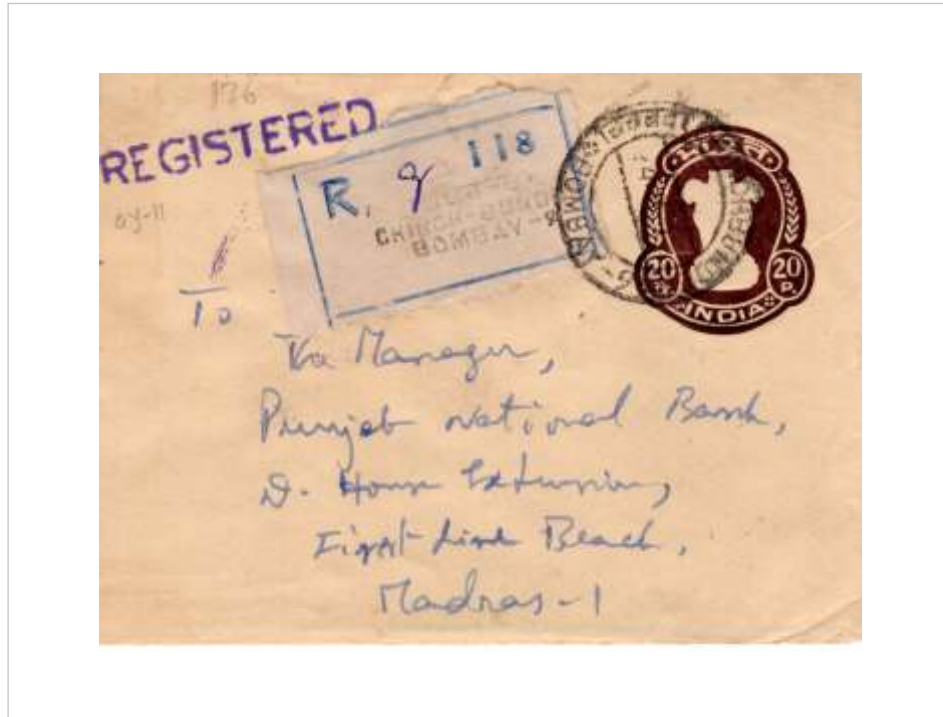 176
REGISTERED
R. 9 118
CHINCH-BUND
BOMBAY-9
भारत
20 20
P. P.
INDIA
10
The Manager,
Punjab National Bank,
D. House Extension,
First Line Beach,
Madras-1